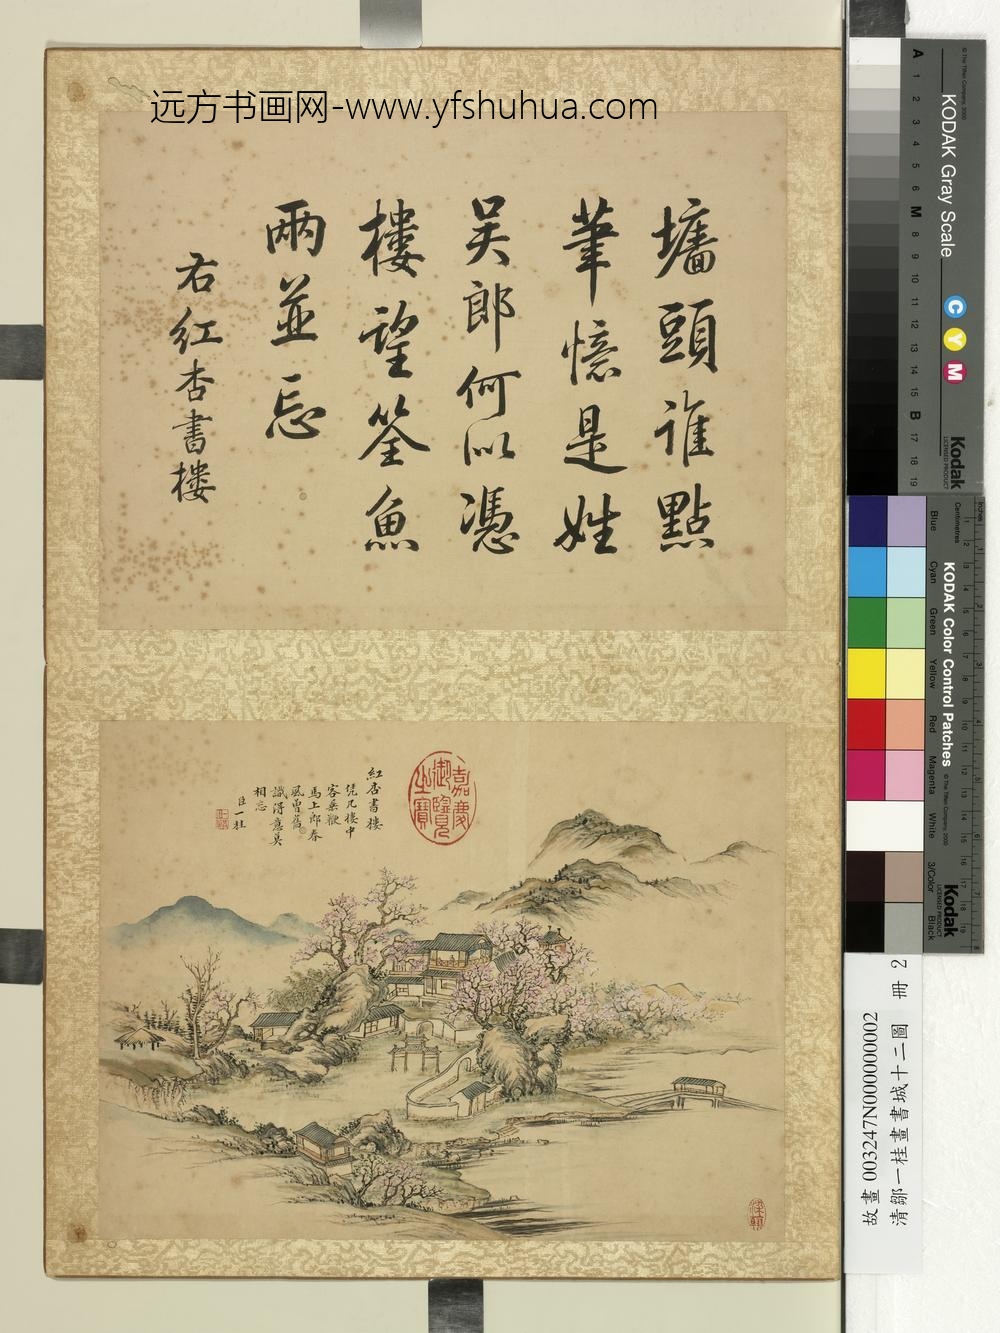 远方书画网-www.yfshuhua.com
墻頭誰點
筆憶是姓
吴郎何似憑
樓望筌魚
兩並忘
右紅杏書樓
紅杏書樓
凭几樓中
客垂鞭
馬上郎春
風曾舊
識得意莫
相忘
臣一桂
嘉慶
御覽
之寶
KODAK Gray Scale
A 1 2 3 4 5 6 M 8 9 10 11 12 13 14 15 B 17 18 19
C Y M
Kodak
LICENSED PRODUCT
© The Tiffen Company, 2000
KODAK Color Control Patches
© The Tiffen Company, 2000
Inches
Centimetres
Blue
Cyan
Green
Yellow
Red
Magenta
White
3/Color
Black
Kodak
LICENSED PRODUCT
故畫 003247N000000002
清鄒一桂畫書城十二圖 冊 2